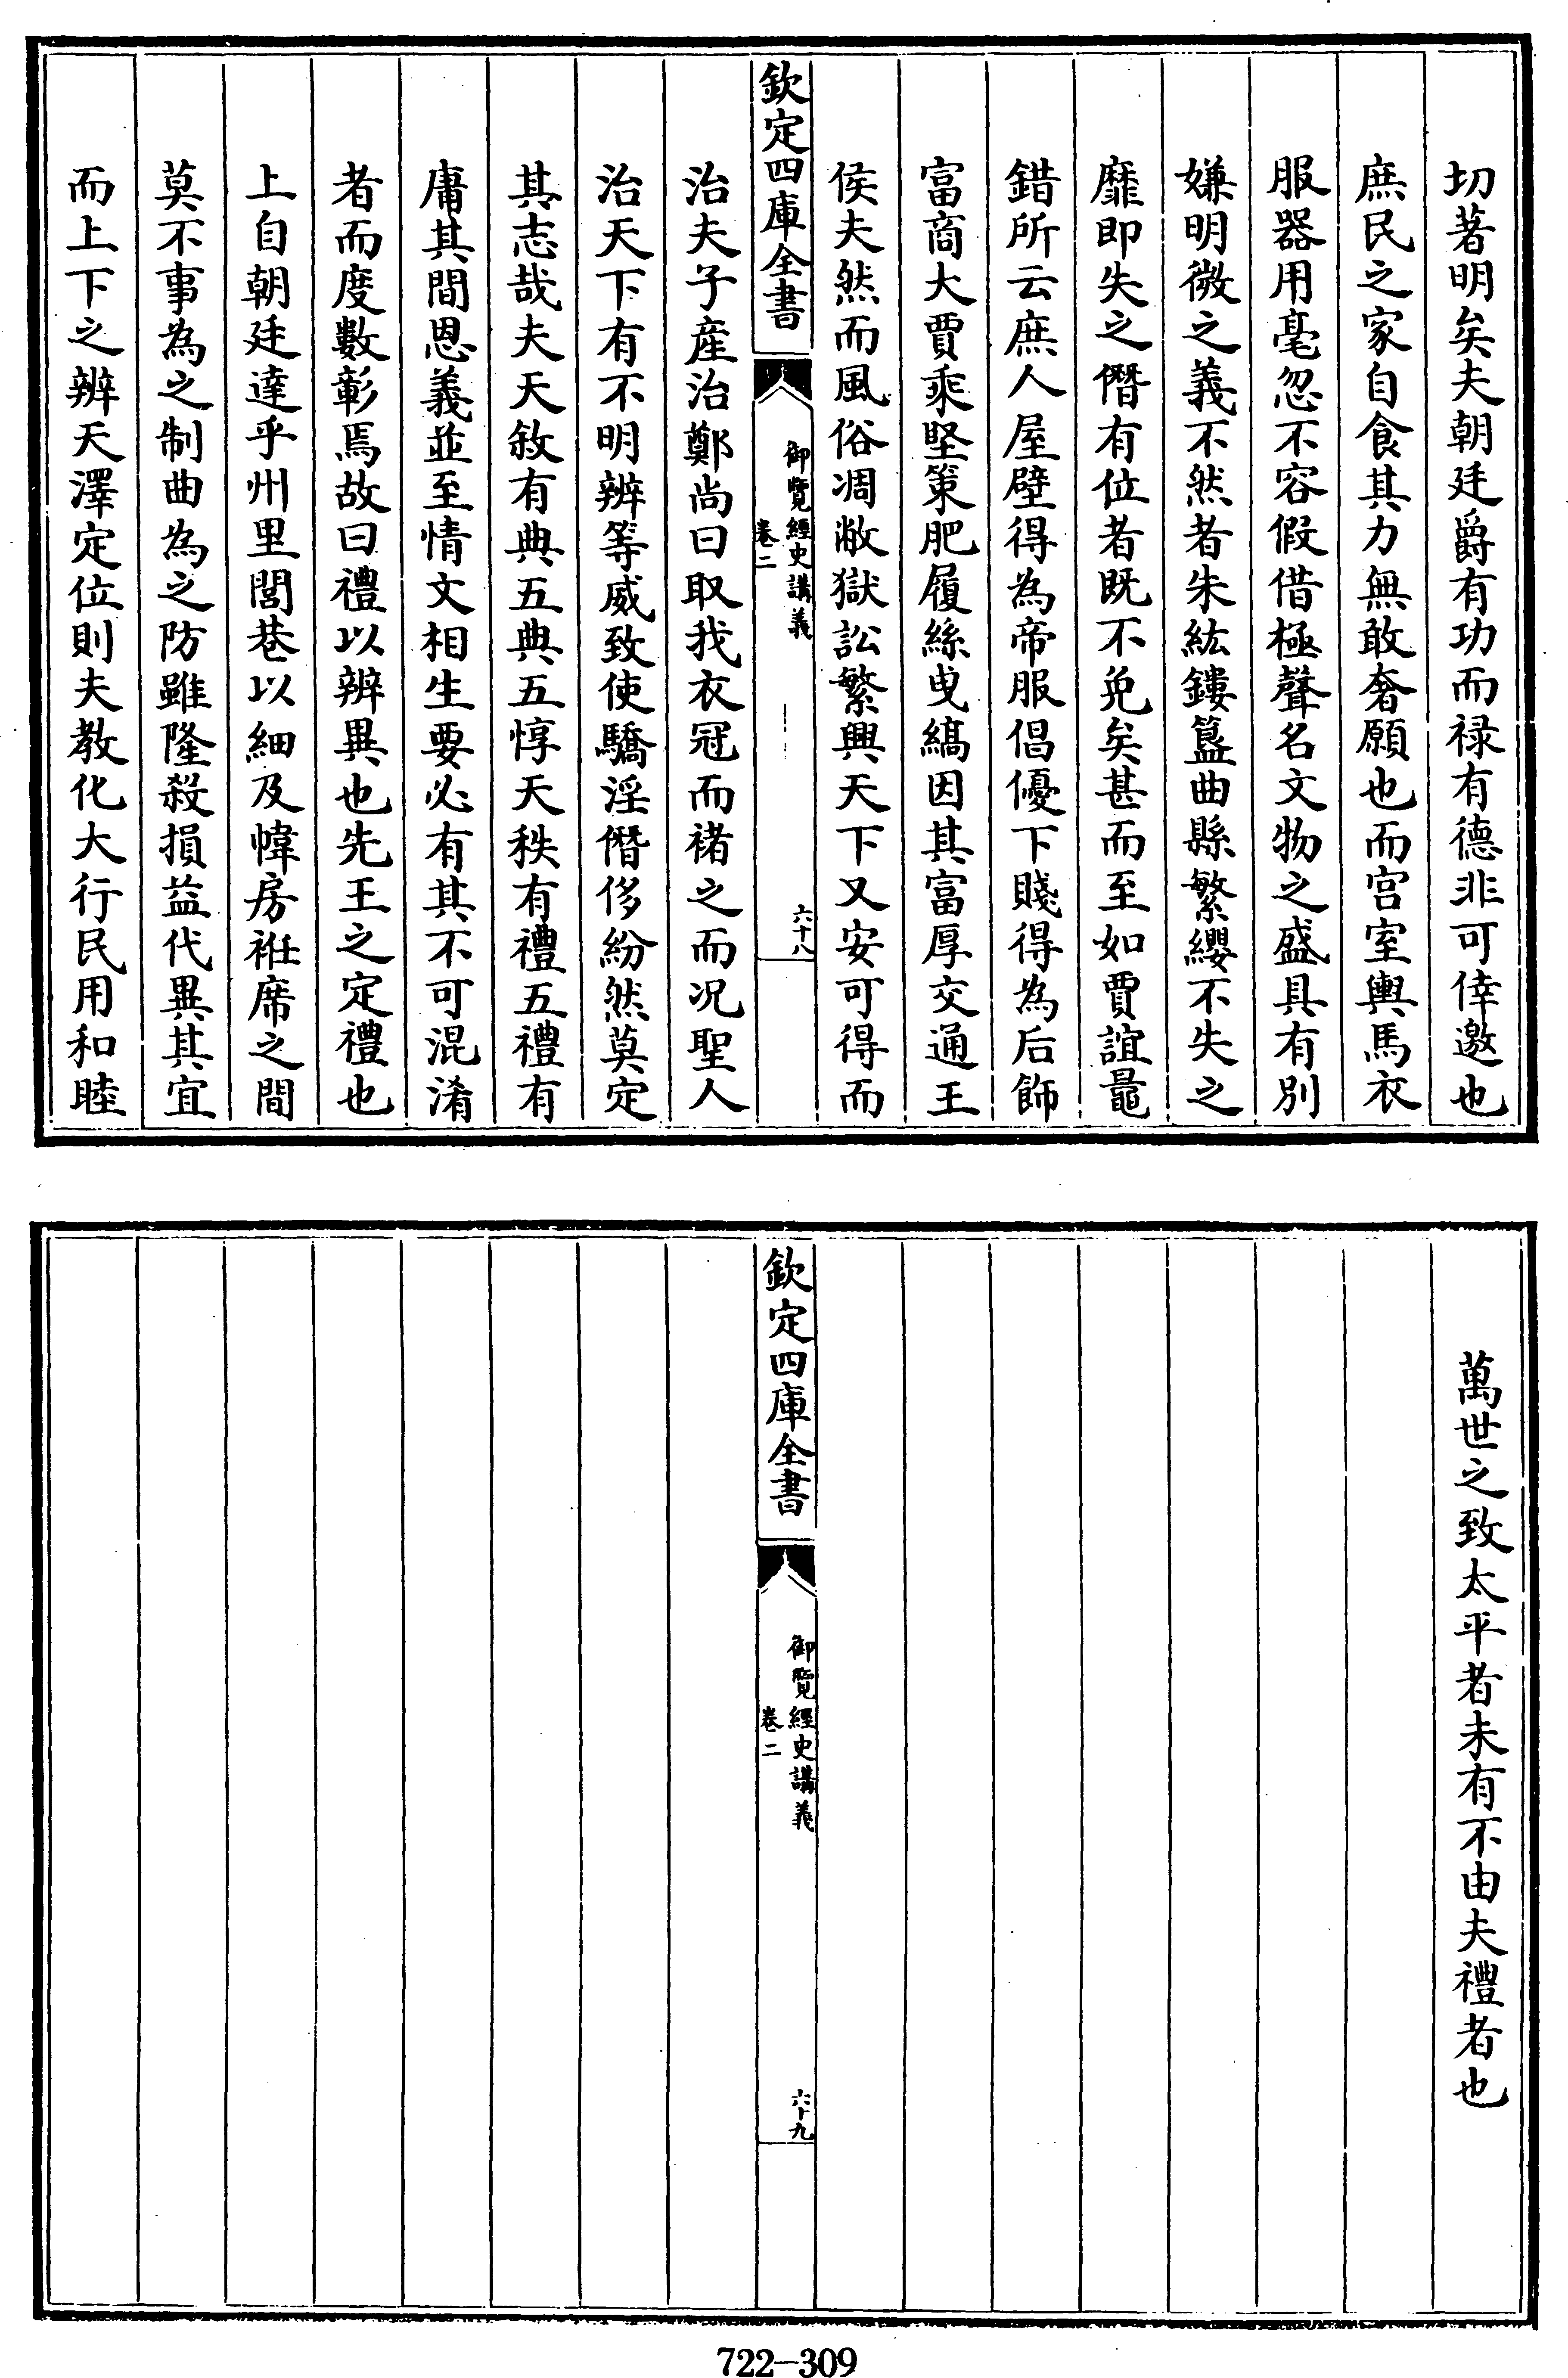 切著明矣夫朝廷爵有功而禄有德非可倖邀也
庶民之家自食其力無敢奢願也而宫室輿馬衣
服器用毫忽不容假借極聲名文物之盛具有別
嫌明微之義不然者朱紘鏤簋曲縣繁纓不失之
靡即失之僭有位者既不免矣甚而至如賈誼鼂
錯所云庶人屋壁得為帝服倡優下賤得為后飾
富商大賈乘堅策肥履絲曳縞因其富厚交通王
侯夫然而風俗凋敝獄訟繁興天下又安可得而
欽定四庫全書
御覽經史講義
卷二
六十八
治夫子産治鄭尚曰取我衣冠而褚之而况聖人
治天下有不明辨等威致使驕淫僭侈紛然莫定
其志哉夫天敘有典五典五惇天秩有禮五禮有
庸其間恩義並至情文相生要必有其不可混淆
者而度數彰焉故曰禮以辨異也先王之定禮也
上自朝廷達乎州里閭巷以細及幃房袵席之間
莫不事為之制曲為之防雖隆殺損益代異其宜
而上下之辨天澤定位則夫教化大行民用和睦
萬世之致太平者未有不由夫禮者也
欽定四庫全書
御覽經史講義
卷二
六十九
722-309